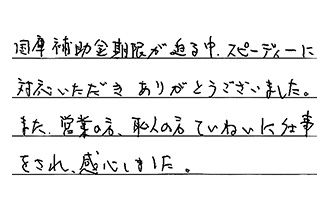 国庫補助金期限が迫る中、スピーディーに
対応いただき ありがとうございました。
また、営業の方、職人の方 ていねいに仕事
をされ、感心しました。